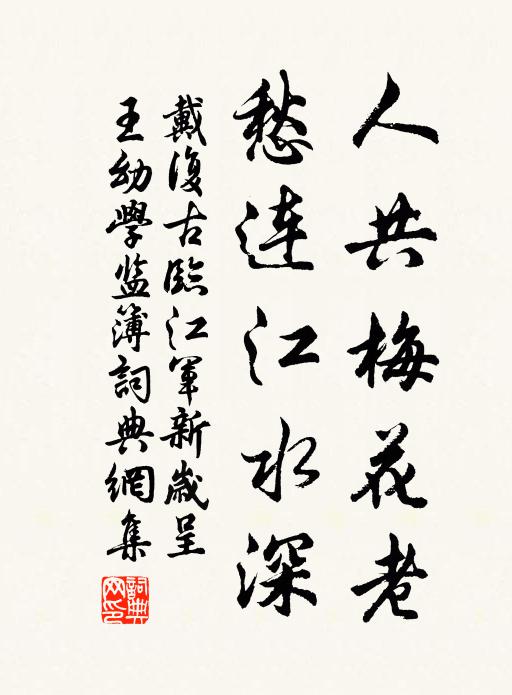 人共梅花老
愁連江水深
戴復古臨江軍新歲呈
王幼學監簿詞典網集
詞典網印